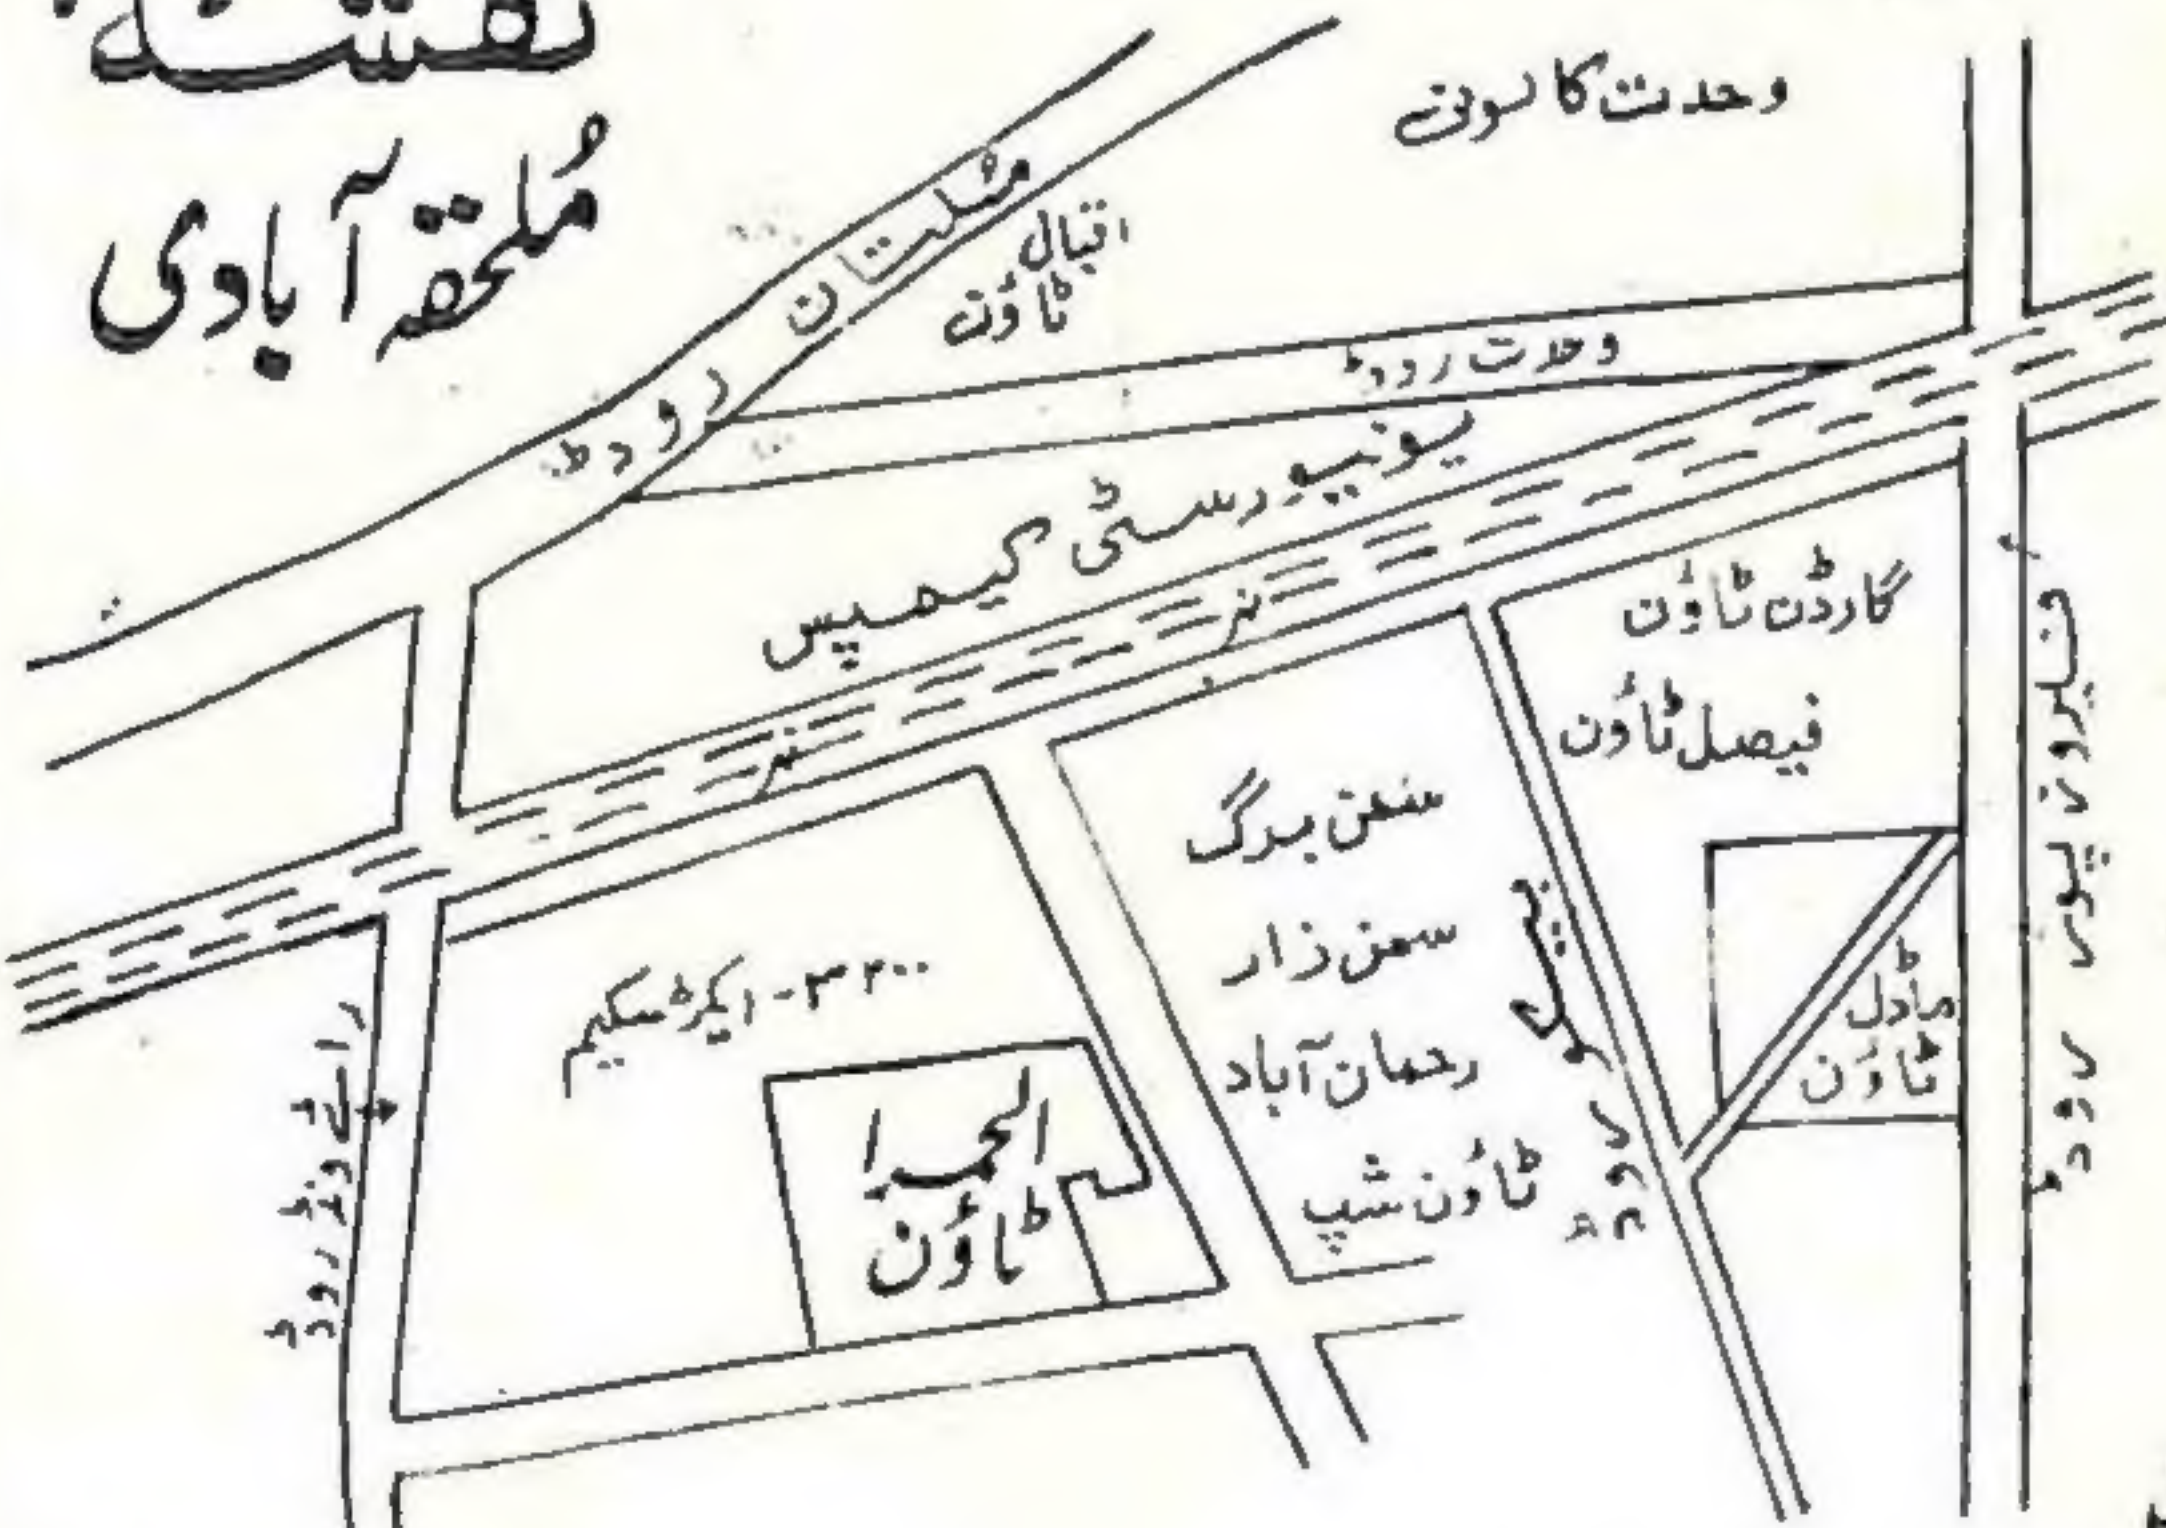 نقشہ
مُلحقہ آبادی
وحدت کالونی
مُلتان روڈ
اقبال
ٹاؤن
وحدت روڈ
یونیورسٹی کیمپس
نہر
نہر
گارڈن ٹاؤن
فیصل ٹاؤن
فیروز پور روڈ
ماڈل
ٹاؤن
سمن زار
رحمان آباد
ٹاؤن شپ
روڈ
۳۲۰۰-ایکڑ سکیم
الحمرا
ٹاؤن
رائے ونڈ روڈ